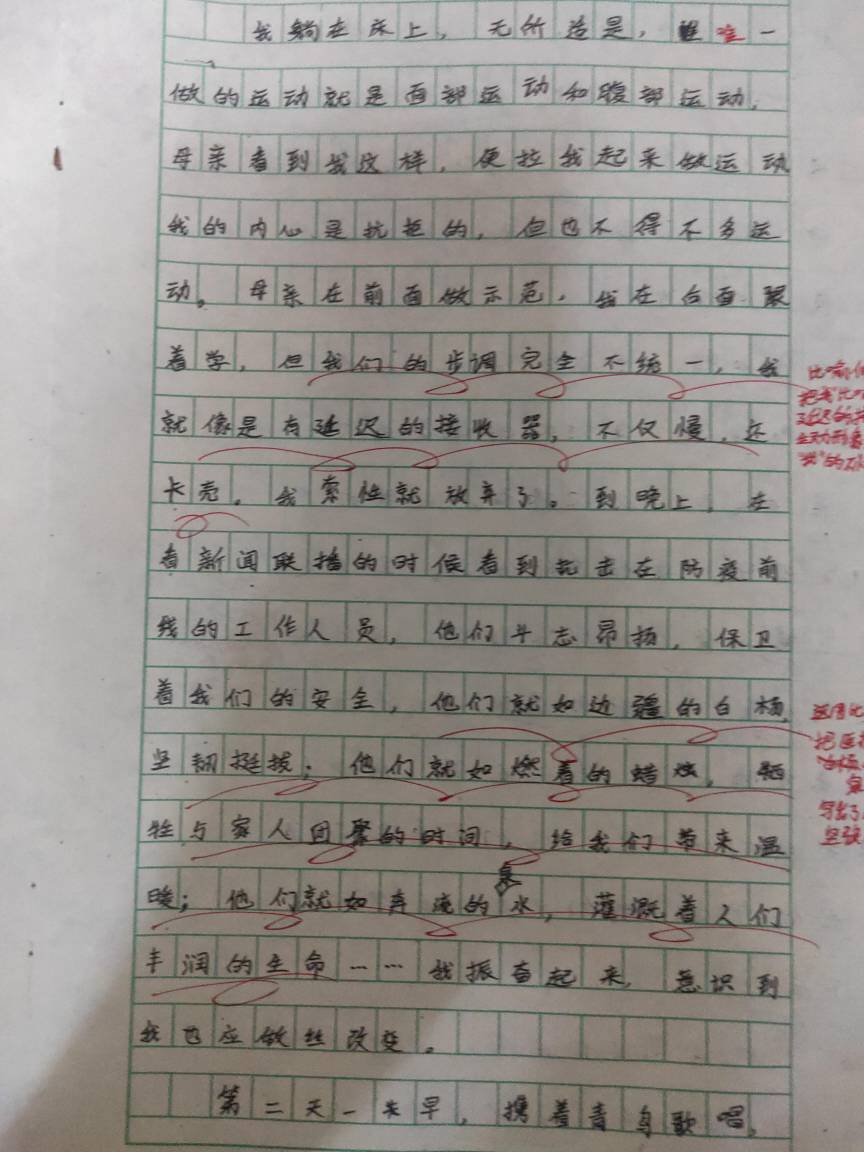 我躺在床上，无所造是，唯一
做的运动就是面部运动和腹部运动，
母亲看到我这样，便拉我起来做运动
我的内心是抗拒的，但也不得不多运
动。母亲在前面做示范，我在后面跟
着学，但我们的步调完全不统一，我
比喻
就像是有延迟的接收器，不仅慢，还
把我比
延迟的
生动形
"我"的
卡壳，我索性就放弃了。到晚上，在
看新闻联播的时候看到抗击在防疫前
线的工作人员，他们斗志昂扬，保卫
着我们的安全，他们就如边疆的白杨，
运用比
坚韧挺拔；他们就如燃着的蜡烛，牺
把医
牲与家人团聚的时间，给我们带来温
写出了
坚强
暖；他们就如奔流的泉水，灌溉着人们
丰润的生命……我振奋起来，意识到
我也应做些改变。
第二天一大早，携着青鸟歌唱，